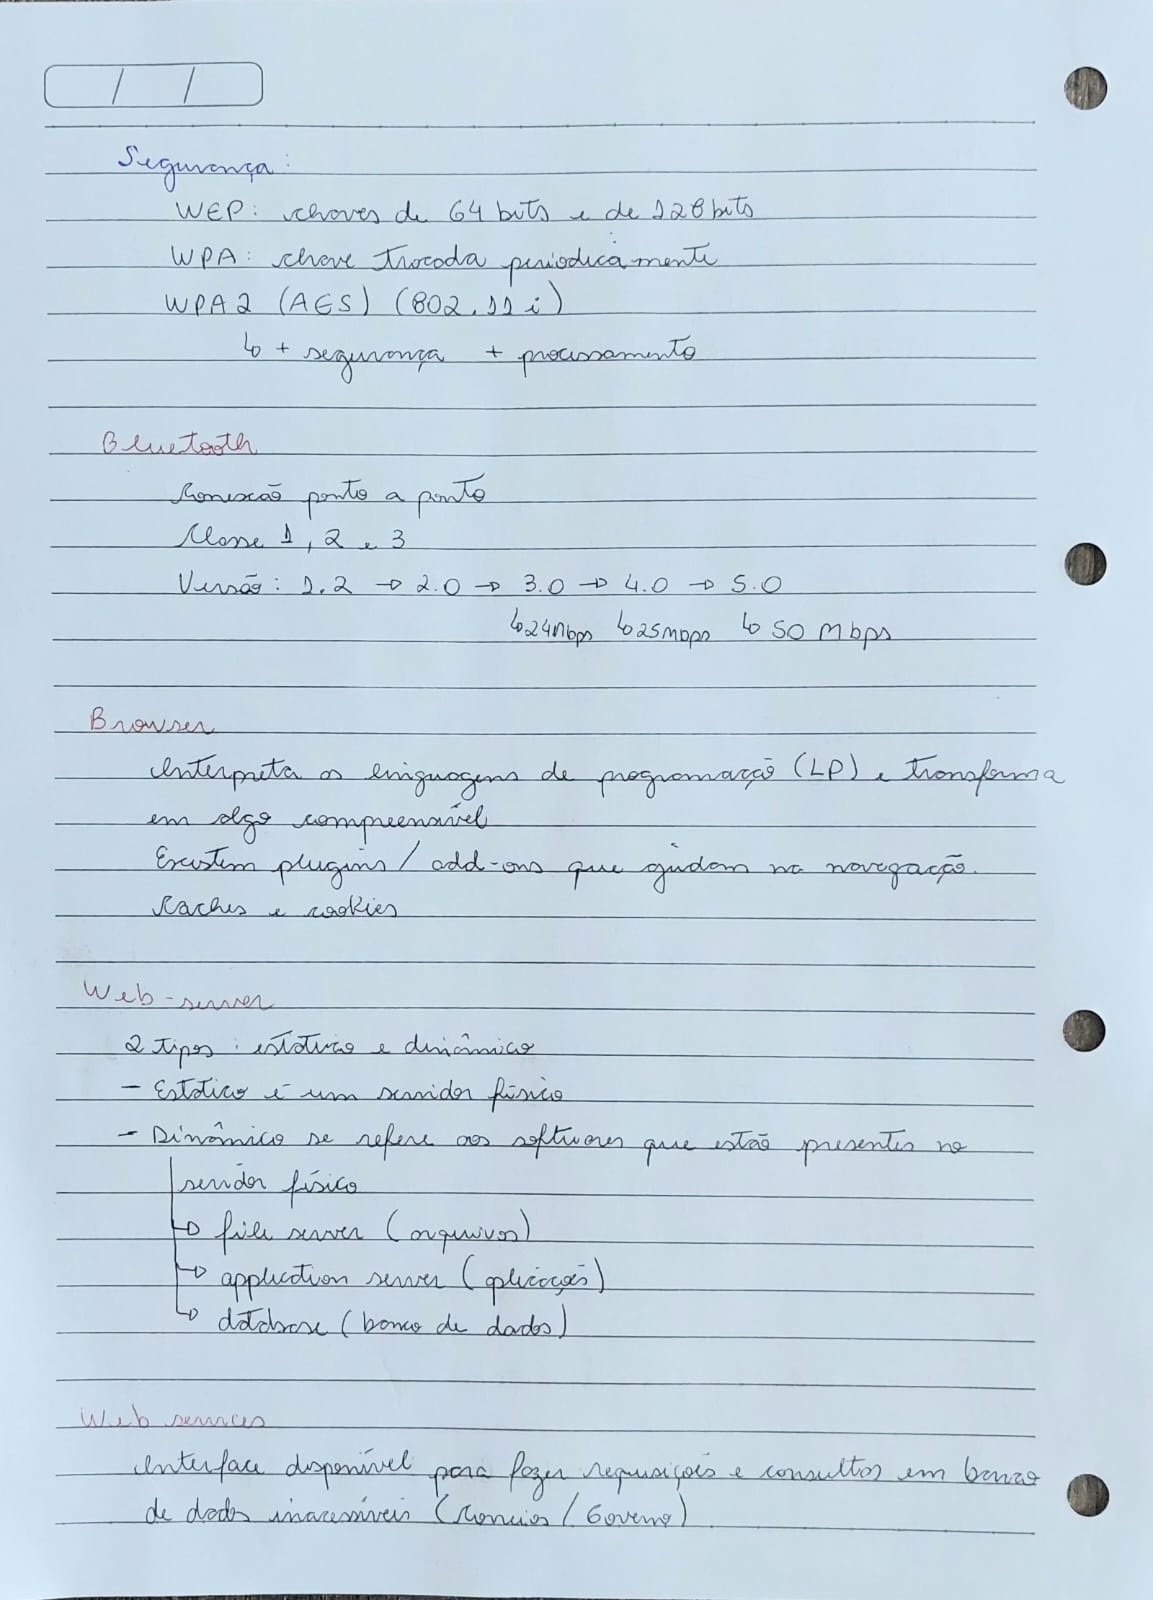 Segurança:
WEP: chaves de 64 bits e de 128 bits
WPA: chave trocada periodicamente
WPA2 (AES) (802.11 i)
↳ + segurança + processamento
Bluetooth
Conexão ponto a ponto
Classe 1, 2 e 3
Versão: 1.2 → 2.0 → 3.0 → 4.0 → 5.0
↳ 24Mbps ↳ 25Mbps ↳ 50 Mbps
Browser
Interpreta as linguagens de programação (LP) e transforma
em algo compreensível
Existem plugins / add-ons que ajudam na navegação.
Caches e cookies
Web-server
2 tipos: estático e dinâmico
- Estático é um servidor físico
- Dinâmico se refere aos softwares que estão presentes no
servidor físico
→ file server (arquivos)
→ application server (aplicações)
→ database (banco de dados)
Web services
Interface disponível para fazer requisições e consultas em banco
de dados inacessíveis (/ Governo)